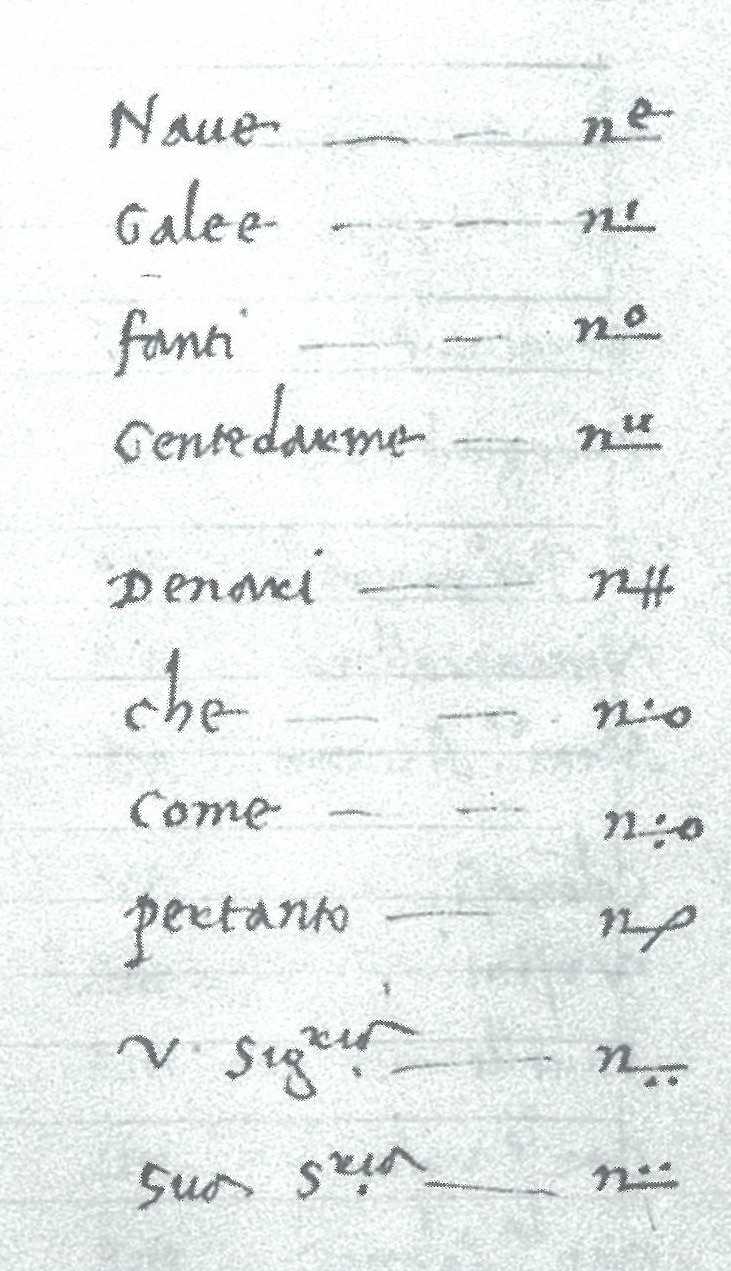 Naue — — nᵉ
Galee — — n'
fanti — — nº
Gentedarme — nᵘ
Denari — n#
che — — n·o
Come — — n÷o
pertanto — n
V. Sigria — n..
Sua Sria — n¨